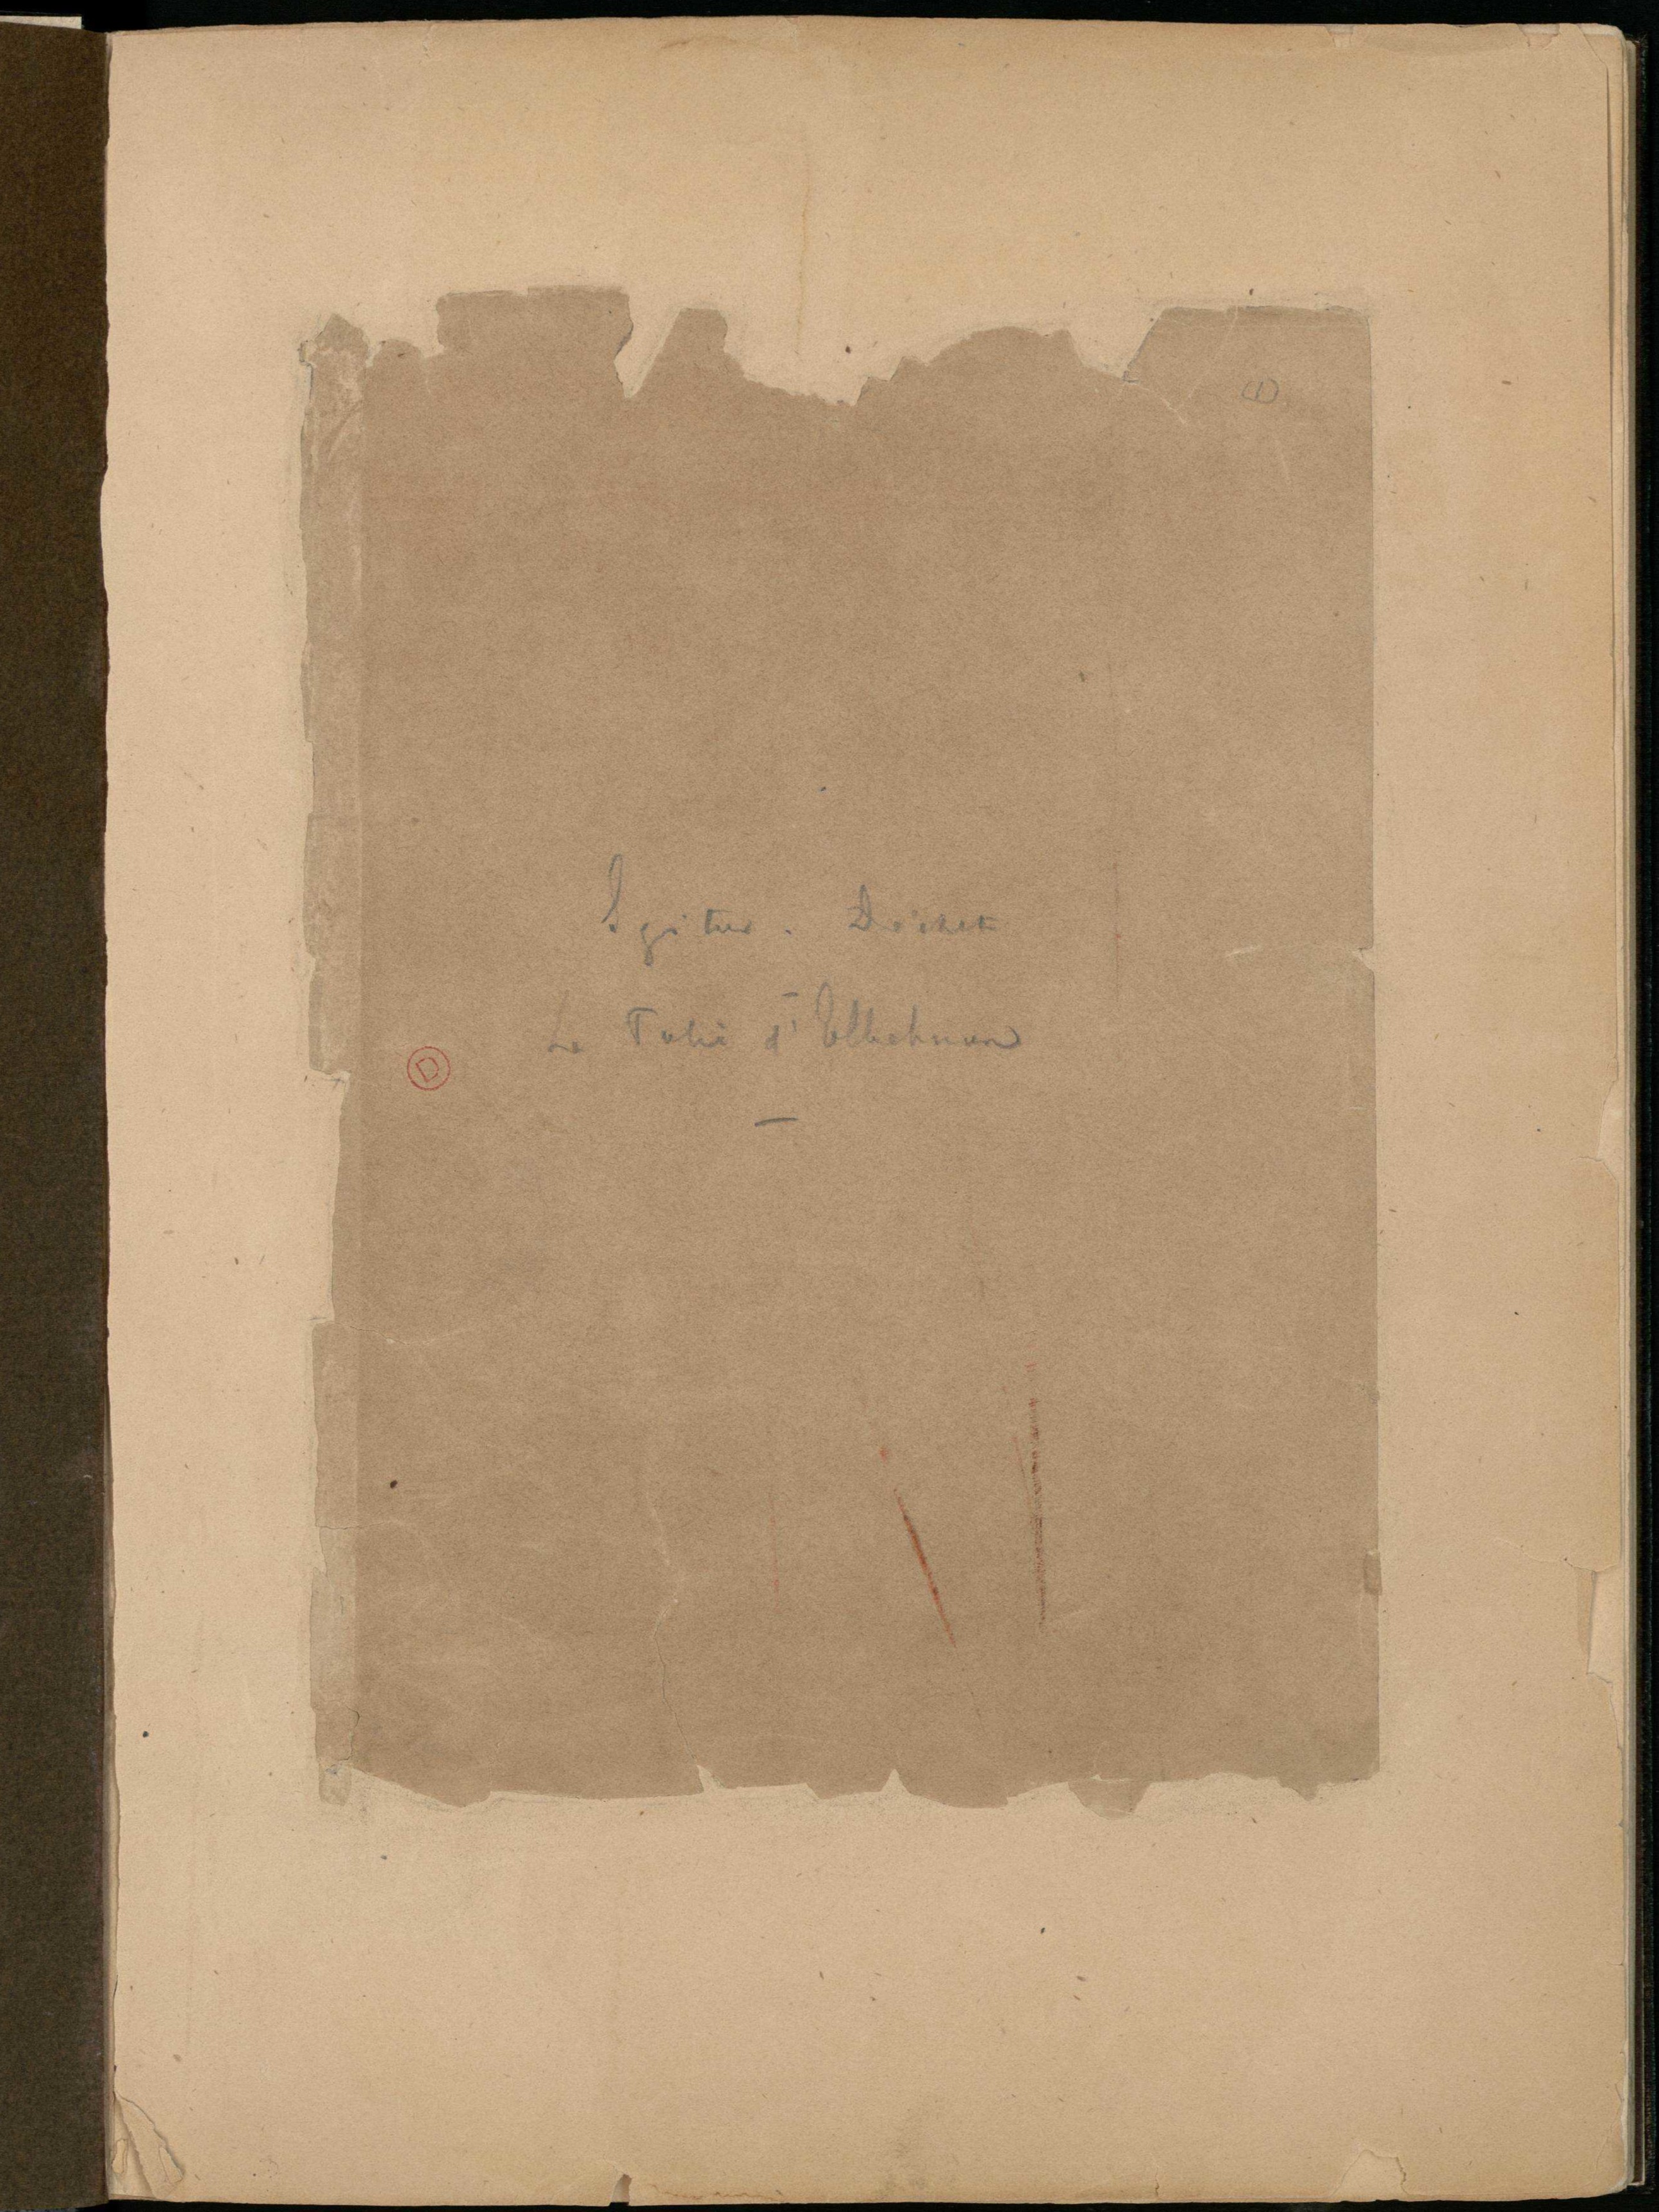 (1)
Igitur. Déchet
La Folie d'Elbehnon
D